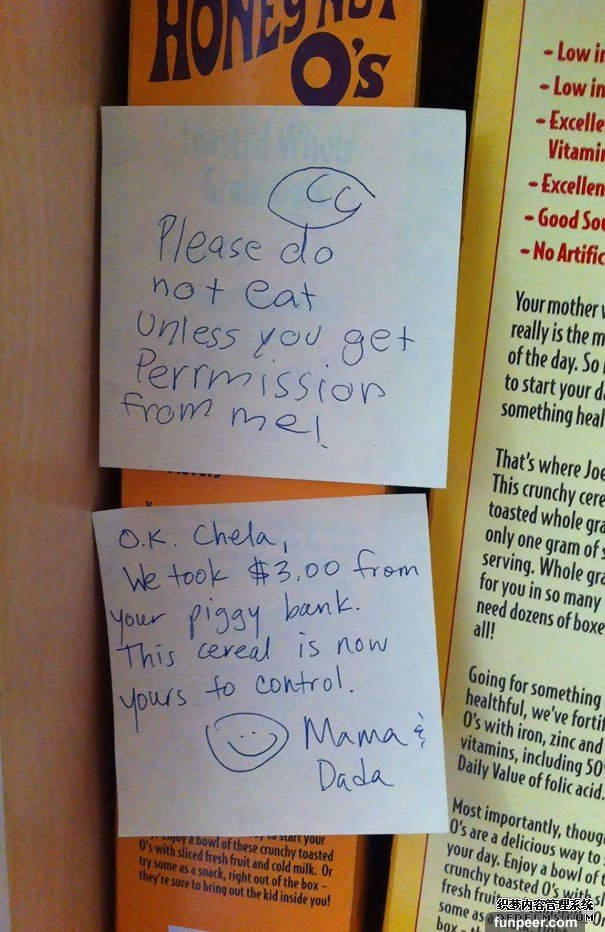 HONEY NUT
O's
Toasted Whole
CC
Please do
not eat
Unless you get
Perrmission
from me!
O.K. Chela,
We took $3.00 from
your piggy bank.
This cereal is now
yours to control.
Mama &
Dada
start your
O's with sliced fresh fruit and cold milk. Or
try some as a snack, right out of the box –
they're sure to bring out the kid inside you!
- Low
- Low
- Excelle
Vitamin
- Excellen
- Good Sou
- No Artific
Your mother
really is the m
of the day. So
to start your d
something heal
That's where Joe
This crunchy cere
toasted whole gra
only one gram of s
serving. Whole gra
for you in so many
need dozens of boxe
all!
Going for something
healthful, we've fortif
O's with iron, zinc and
vitamins, including 50
Daily Value of folic acid.
Most importantly, thoug
O's are a delicious way to
your day. Enjoy a bowl of t
crunchy toasted O's with sl
fresh fruit
some as a
box
织梦内容管理系统
DEDECMS.COM
funpeer.com